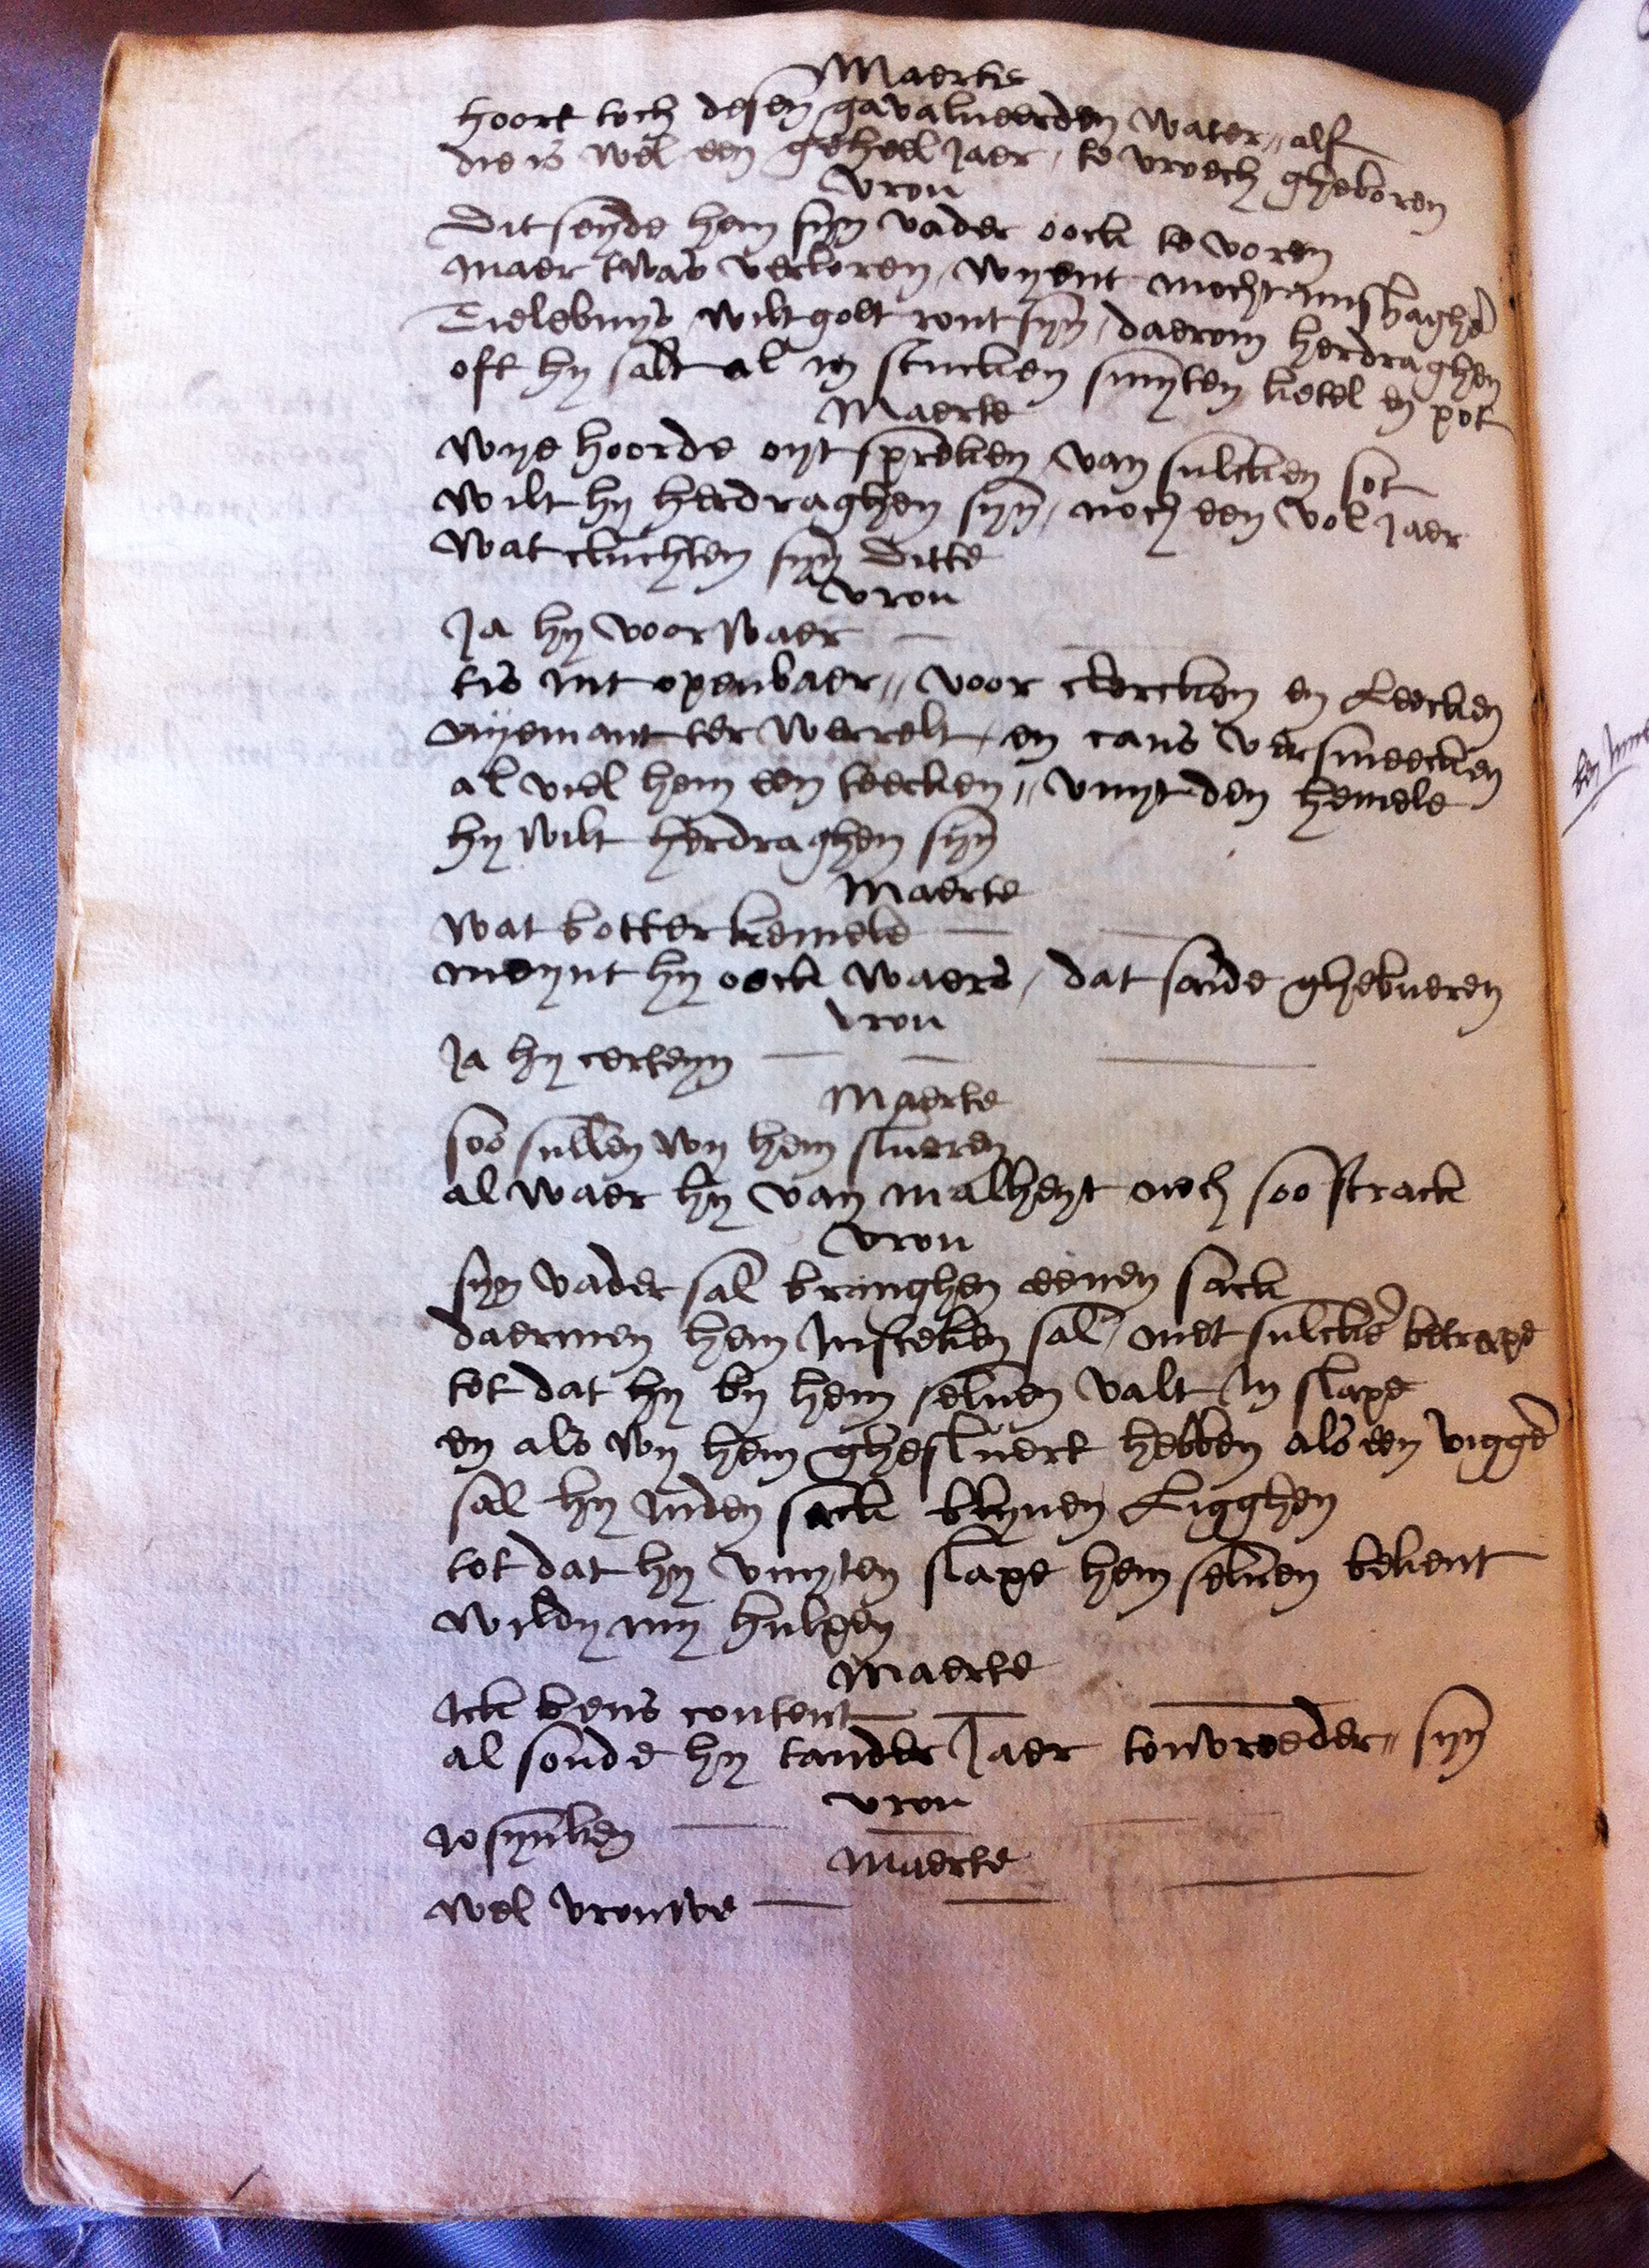 Maerte
hoort toch desen gavalueerden water,, alf
die is wel een geheel jaer, te vroech gheboren
vrou
Dit seyde hem syn vader oock te voren
maer twas verloren, wyent mocht mishaghē
Tielebuys wilt golt ront syn, daerom herdraghen
oft hy salt al in stucken smyten ketel en pot
Maerte
wye hoorde oyt spreken van sulcken sot
wilt hy herdraghen syn, noch een vol jaer
wat cluchten syn ditte
vrou
Ja hy voorwaer
tis int openbaer,, voor clercken en Leecken
nyemant ter werrelt, en cans versmeecken
al viel hem een teecken,, vuyt den hemele
hy wilt herdraghen syn
Maerte
wat botter kemele
meynt hy oock waers, dat soude ghebueren
vrou
Ja hy certeyn
Maerte
soo sullen wy hem stueren
al waer hy van malheyt noch soo strack
vrou
syn vader sal bringhen eenen sack
daermen hem Insteken sal, met sulckē betrape
tot dat hy by hem seluen valt In slape
en als wy hem ghestuert hebben als een viggē
sal hy Inden sack blyuen Ligghen
tot dat hy vuyten slape hem seluen bekent
wildy my hulpen
Maerte
Ick bens content
al soude hy tander Jaer tonvreeder,, syn
vrou
rosynken
Maerte
wel vrouwe